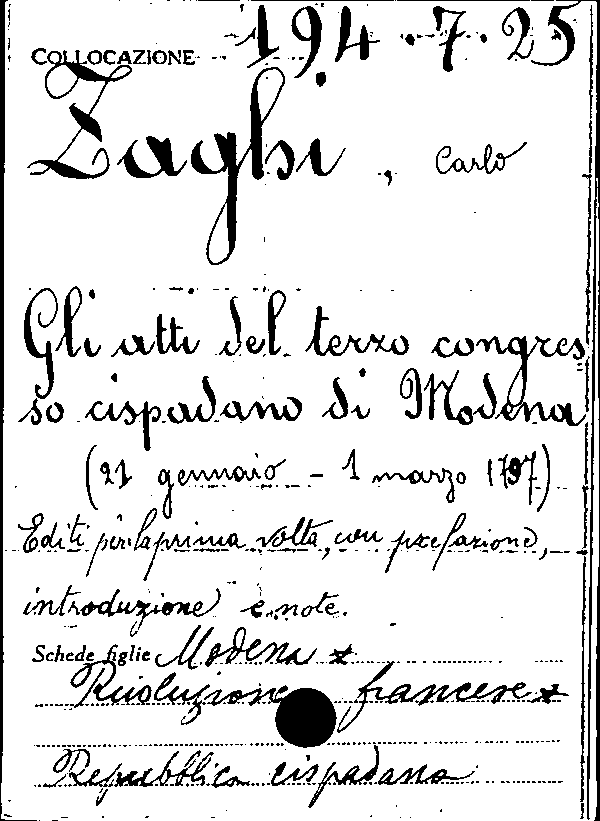 COLLOCAZIONE 194.7.25
Zaghi, Carlo
Gli atti del terzo congres
so cispadano di Modena
(21 gennaio - 1 marzo 1797)
Editi per la prima volta, con prefazione,
introduzione e note.
Schede figlie Modena x
Rivoluzione francese x
Repubblica cispadana